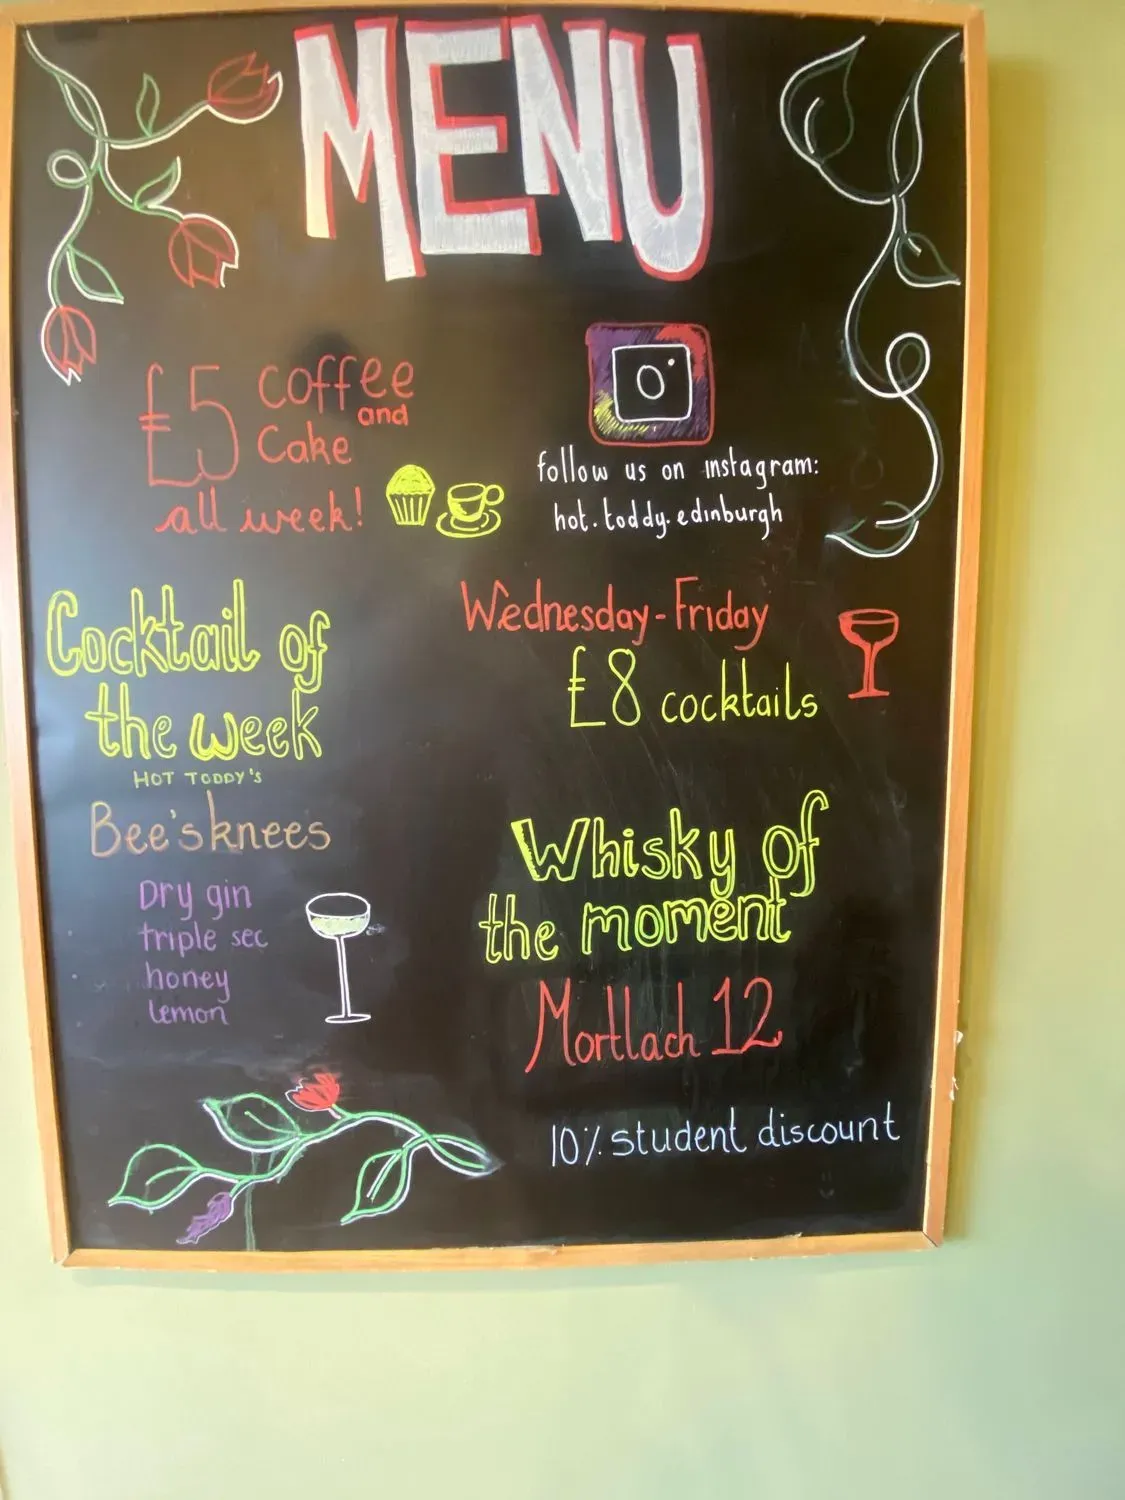 MENU
£5 coffee
and
Cake
all week!
follow us on instagram:
hot.toddy.edinburgh
Cocktail of
the week
HOT TODDY'S
Bee's knees
Dry gin
triple sec
honey
lemon
Wednesday - Friday
£8 cocktails
Whisky of
the moment
Mortlach 12
10% student discount